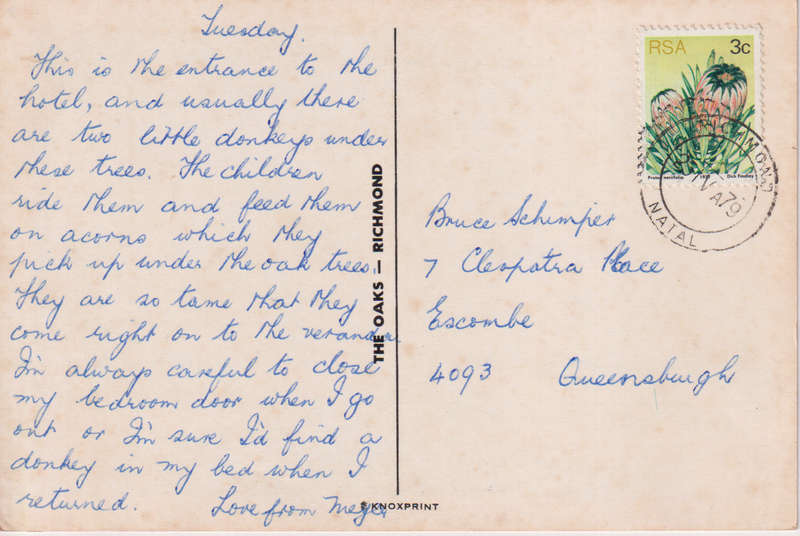 Tuesday.
This is the entrance to the
hotel, and usually there
are two little donkeys under
these trees. The children
ride them and feed them
on acorns which they
pick up under the oak trees.
They are so tame that they
come right on to the veranda
I'm always careful to close
my bedroom door when I go
out or I'm sure I'd find a
donkey in my bed when I
returned. Love from Meyer
THE OAKS — RICHMOND
KNOXPRINT
RSA 3c
1977 Dick Findlay
RICHMOND
79
NATAL
Bruce Schimper
7 Cleopatra Place
Escombe
4093 Queensburgh